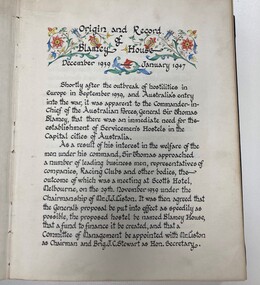 Origin and Record
of
Blamey House
December 1939 January 1947
Shortly after the outbreak of hostilities in
Europe in September 1939, and Australia's entry
into the war, it was apparent to the Commander-in-
Chief of the Australian Forces, General Sir Thomas
Blamey, that there was an immediate need for the
establishment of Servicemen's Hostels in the
Capital cities of Australia.
As a result of his interest in the welfare of the
men under his command, Sir Thomas approached
a number of leading business men, representatives of
companies, Racing Clubs and other bodies, the
outcome of which was a meeting at Scott's Hotel,
Melbourne, on the 29th November 1939 under the
Chairmanship of Mr. J.J. Liston. It was then agreed that
the General's proposal be put into effect as speedily as
possible, the proposed hostel be named Blamey House,
that a fund to finance it be created, and that a
Committee of Management be appointed with Mr. Liston
as Chairman and Brig. J.C. Stewart as Hon. Secretary.